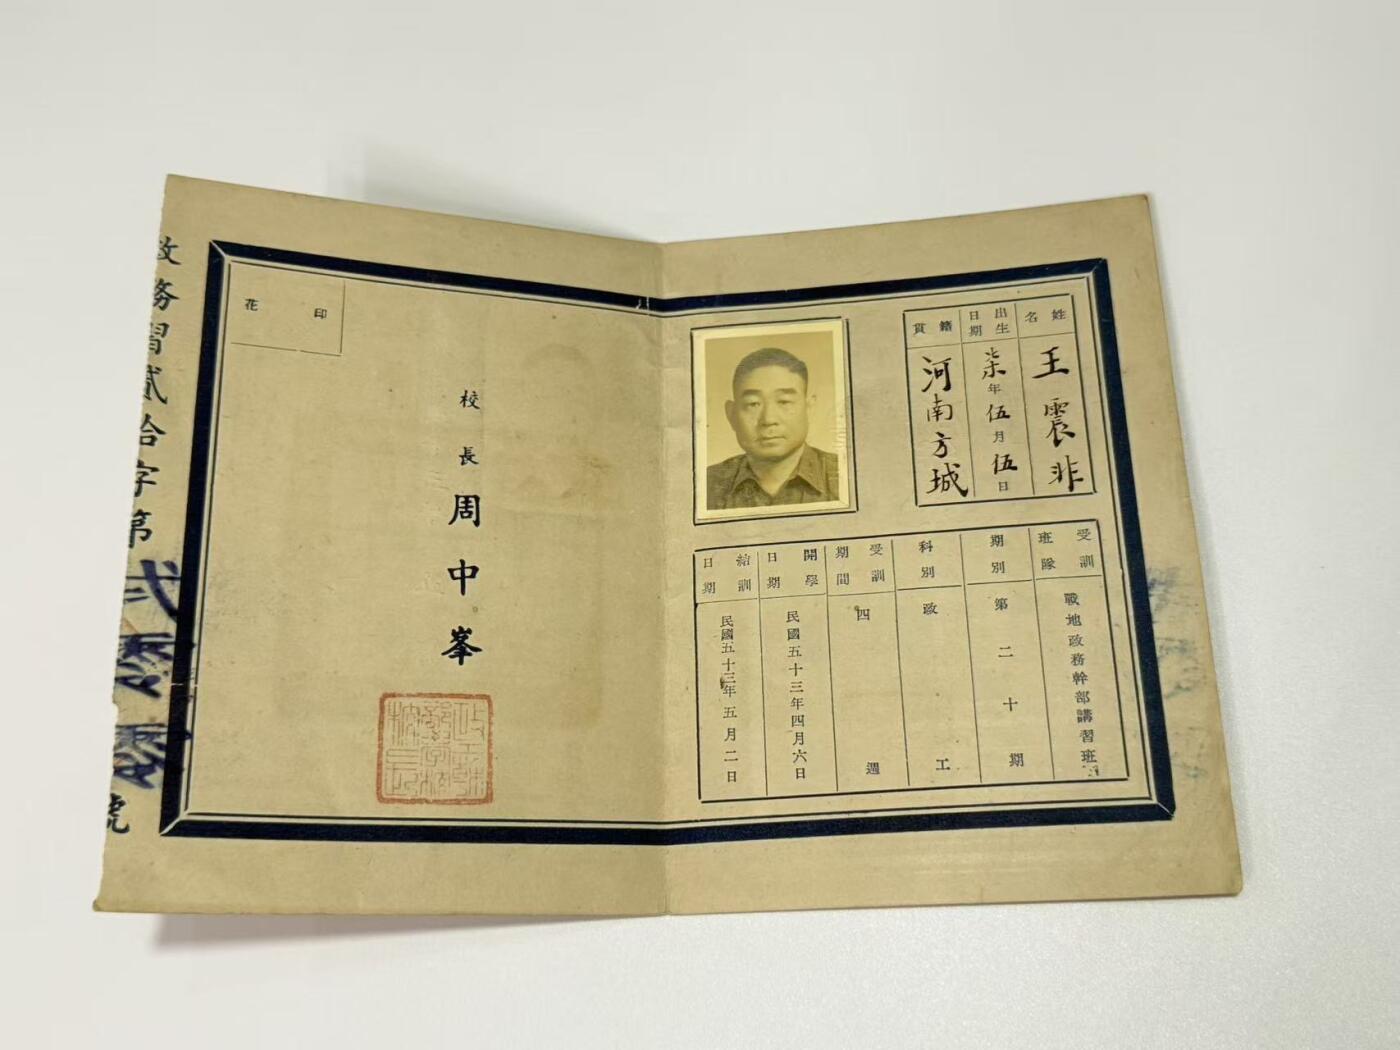 姓名
王震非
出生日期
柒年伍月伍日
籍貫
河南方城
受訓班隊
戰地政務幹部講習班
期別
第二十期
科別
政工
受訓期間
四週
開學日期
民國五十三年四月六日
結訓日期
民國五十三年五月二日
印花
校長周中峯
政務習貳拾字第
號